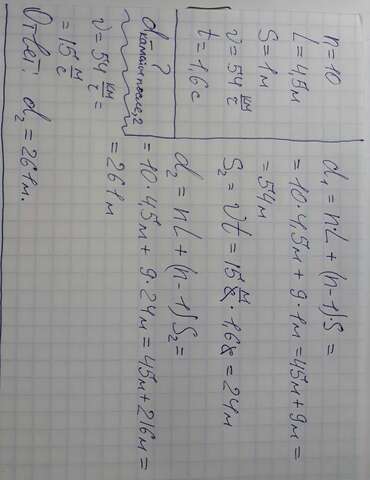 n = 10
L = 4,5м
S = 1м
v = 54 км/с
t = 1,6с
d - ?
камаин после, 2
v = 54 км/с =
= 15 м/с
d₁ = nL + (n-1)·S =
= 10·4,5м + 9·1м = 45м + 9м =
= 54м
S₂ = vt = 15 м/с · 1,6с = 24м
d₂ = nL + (n-1)S₂ =
= 10·4,5м + 9·24м = 45м + 216м =
= 261м
Ответ: d₂ = 261м.